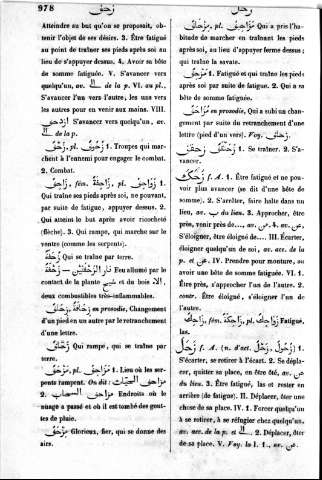 978
زحف
زحل
Atteindre au but qu'on se proposait, ob-
tenir l'objet de ses désirs. 3. Être fatigué
au point de traîner ses pieds après soi au
lieu de s'appuyer dessus. 4. Avoir sa bête
de somme fatiguée. V. S'avancer vers
quelqu'un, av. الى de la p. VI. au pl.,
S'avancer l'un vers l'autre, les uns vers
les autres pour en venir aux mains. VIII.
S'avancer vers quelqu'un, av.
الى de la p.
زَحْفٌ, pl. زُحُوفٌ 1. Troupes qui mar-
chent à l'ennemi pour engager le combat.
2. Combat.
زَاحِفٌ, fém. زَاحِفَةٌ, pl. زَوَاحِفُ 1.
Qui traîne ses pieds après soi, ne pouvant,
par suite de fatigue, appuyer dessus. 2.
Qui atteint le but après avoir ricoché
(flèche). 3. Qui rampe, qui marche sur le
ventre (comme les serpents).
Qui se traîne par terre.
نار الزحفتين Feu allumé par le
contact de la plante شيح et du bois الاء,
deux combustibles très-inflammables.
en prosodie, Changement
d'un pied en un autre par le retranchement
d'une lettre.
Qui rampe, qui se traîne par
terre.
مَزْحَفٌ, pl. مَزَاحِفُ 1. Lieu où les ser-
pents rampent. On dit: مزاحف الحيّات
2. مزاحف السحاب Endroits où le
nuage a passé et où il est tombé des gout-
tes de pluie.
Glorieux, fier, qui se donne des
airs.
pl. Qui a pris l'ha-
bitude de marcher en traînant les pieds
après soi, au lieu d'appuyer ferme dessus;
qui traîne la savate.
1. Fatigué et qui traîne les pieds
après soi par suite de fatigue. 2. Qui a sa
bête de somme fatiguée.
en prosodie, Qui a subi un chan-
gement par suite du retranchement d'une
lettre (pied d'un vers). Voy.
1. Se traîner. 2. S'a-
vancer.
زَحَكَ f. A. 1. Être fatigué et ne pou-
voir plus avancer (se dit d'une bête de
somme). 2. S'arrêter, faire halte dans un
lieu, av. ب du lieu. 3. Approcher, être
près, venir près de..., av. من. 4. av. عن,
S'éloigner, être éloigné de.... III. S'écarter,
éloigner quelqu'un de soi, av. acc. de la
p. et عن. IV. Prendre pour monture, ou
avoir une bête de somme fatiguée. VI. 1.
Être près, s'approcher l'un de l'autre. 2.
contr. Être éloigné, s'éloigner l'un de
l'autre.
زَاحِكٌ, fém. زَاحِكَةٌ, pl. زَوَاحِكُ Fatigué,
las.
زَحَلَ f. A. (n. d'act. زَحْلٌ, زُحُولٌ) 1.
S'écarter, se retirer à l'écart. 2. Se dépla-
cer, quitter sa place, en être ôté, av. عن
du lieu. 3. Être fatigué, las et rester en
arrière (de fatigue). II. Déplacer, ôter une
chose de sa place. IV. 1. Forcer quelqu'un
à se retirer, à se réfugier chez quelqu'un,
av. acc. de la p. et الى. 2. Déplacer, ôter
de sa place. V. Voy. la I. 1., av. عن